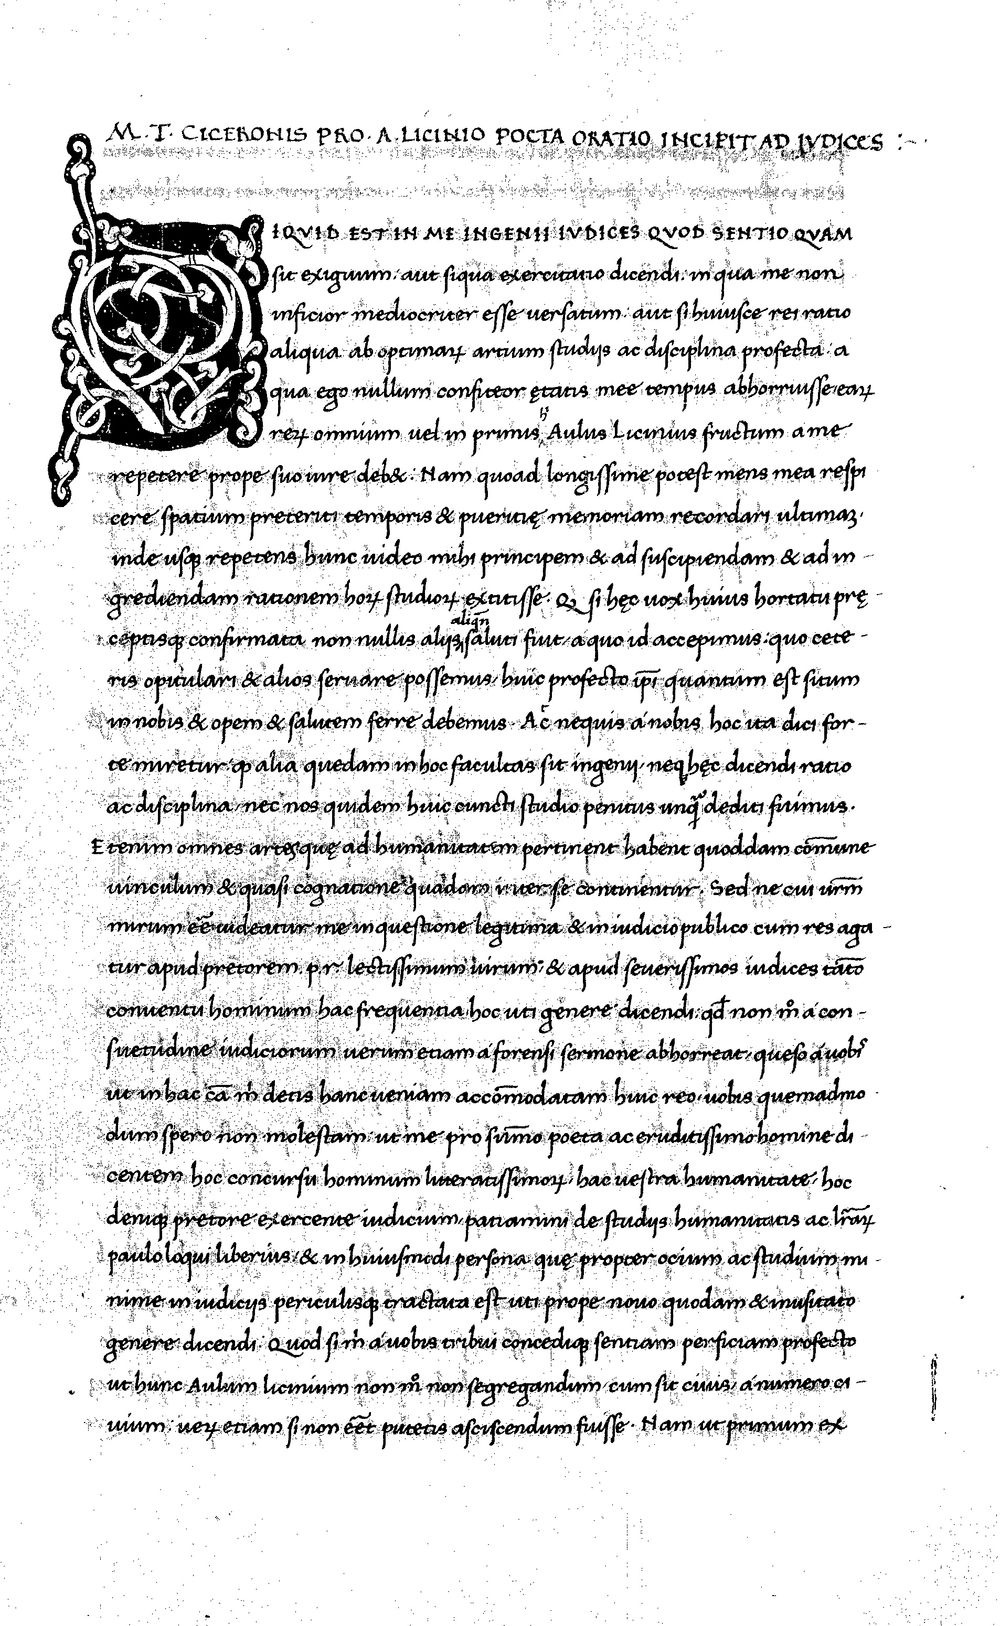 M. T. CICERONIS PRO. A. LICINIO POETA ORATIO INCIPIT AD IVDICES :~
SIQVID EST IN ME INGENII IVDICES QVOD SENTIO QVAM
sit exiguum: aut siqua exercitatio dicendi: in qua me non
inficior mediocriter esse uersatum: aut si huiusce rei ratio
aliqua ab optimaꝝ artium studijs ac disciplina profecta: a
qua ego nullum confiteor ętatis mee tempus abhorruisse: eaꝝ
reꝝ omnium uel in primis h̊ Aulus Licinius fructum a me
repetere prope suo iure deb&. Nam quoad longissime potest mens mea respi
cere spatium preteriti temporis & pueritię memoriam recordari ultimaꝫ.
inde usqꝫ repetens hunc uideo mihi principem & ad suscipiendam & ad in-
grediendam rationem hoꝝ studioꝝ extitisse. Qꝫ si hęc uox huius hortatu prę-
ceptisqꝫ confirmata non nullis alijs aliqn̄ saluti fuit: a quo id accepimus: quo cete-
ris opitulari & alios seruare possemus: huic profecto ip̄i quantum est situm
in nobis & opem & salutem ferre debemus. Ac̄ nequis a nobis hoc ita dici for-
te miretur ꝙ alia quedam in hoc facultas sit ingenij: neqꝫ hęc dicendi ratio
ac disciplina: nec nos quidem huic cuncti studio penitus unq̄ dediti fuimus.
Etenim omnes artes quę ad humanitatem pertinent habent quoddam cōmune
uinculum & quasi cognatione quadam inter se continentur. Sed ne cui urm̄
mirum eē uideatur me in questione legitima & in iudicio publico cum res aga-
tur apud pretorem. p. r. lectissimum uirum: & apud seuerissimos iudices tāto
conuentu hominum hac frequentia hoc uti genere dicendi: qđ non m̊ a con-
suetudine iudiciorum uerum etiam a forensi sermone abhorreat: queso a uobiˢ
ut in hac cā m̍ detis hanc ueniam accōmodatam huic reo: uobis quemadmo-
dum spero non molestam: ut me pro sūmo poeta ac eruditissimo homine di-
centem hoc concursu hominum litteratissimoꝝ: hac uestra humanitate: hoc
deniqꝫ pretore exercente iudicium: patiamini de studijs humanitatis ac lr̄aꝝ
paulo loqui liberius: & in huiusmodi persona quę propter ocium ac studium mi-
nime in iudicijs periculisqꝫ tractata est uti prope nouo quodam & inusitato
genere dicendi. Quod si m̍ a uobis tribui concediqꝫ sentiam perficiam profecto
ut hunc Aulum licinium non m̊ non segregandum: cum sit ciuis: a numero ci-
uium: ueꝝ etiam si non eēt putetis asciscendum fuisse. Nam ut primum ex